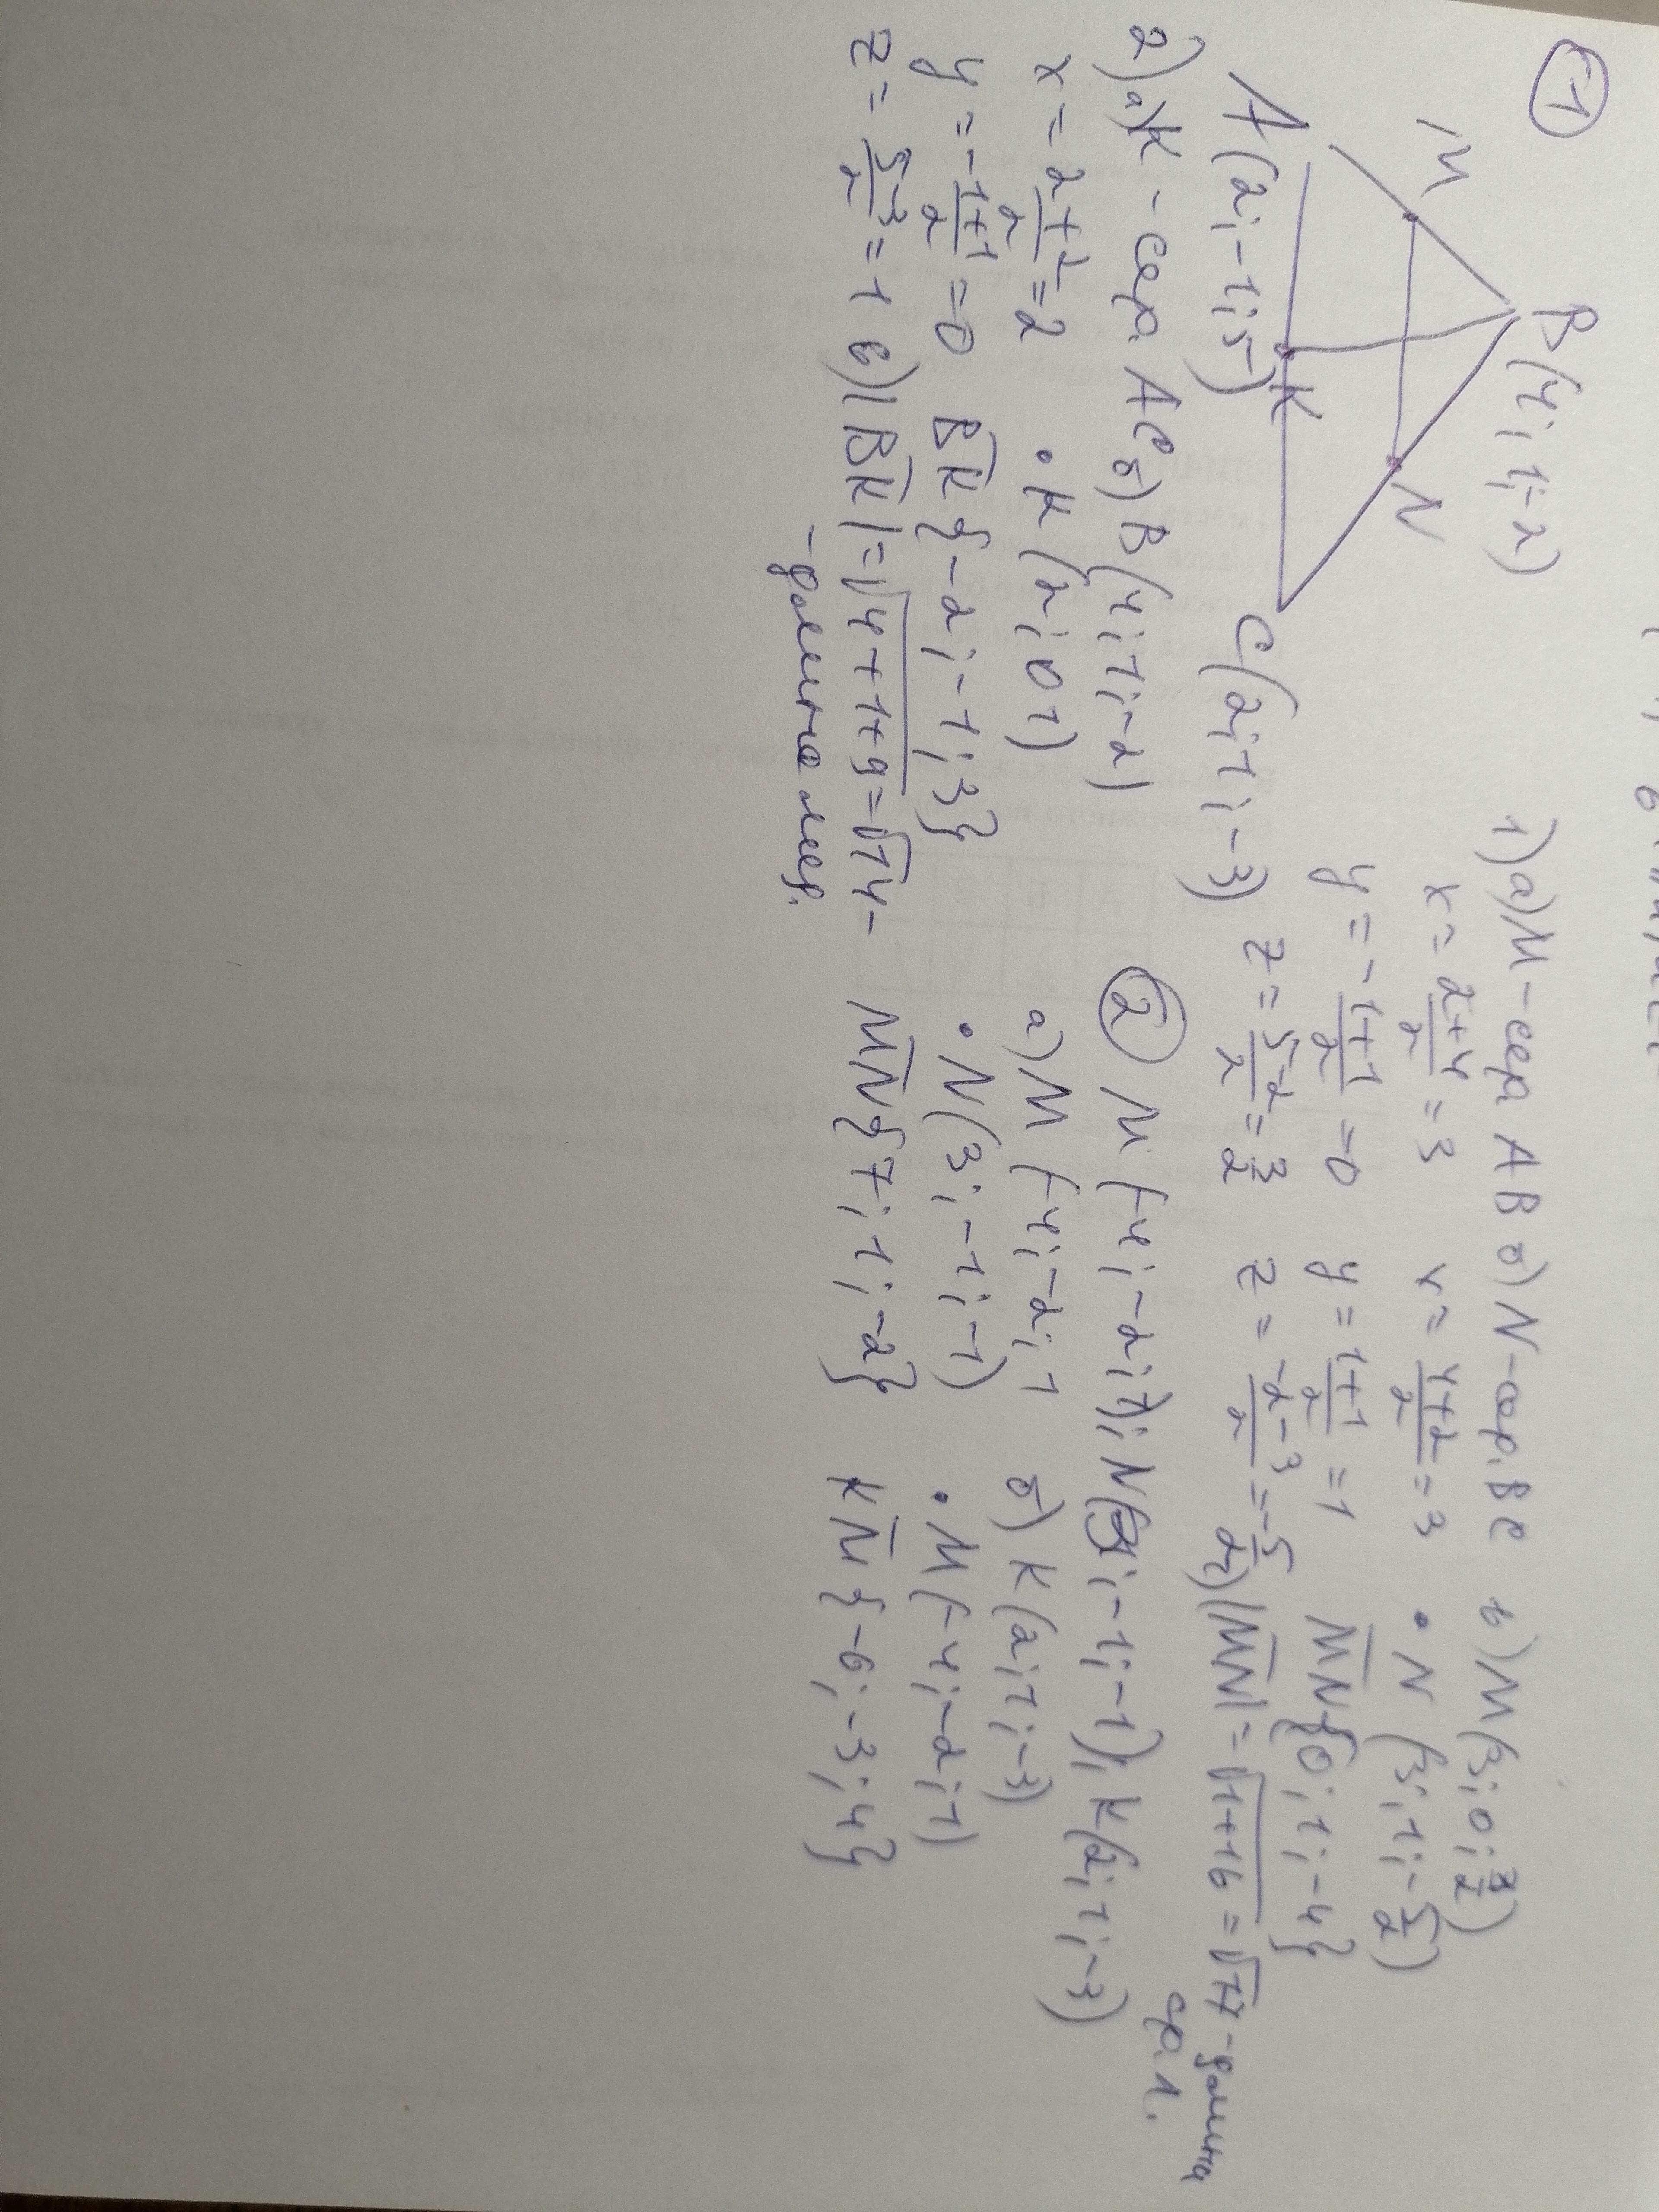 ①
B(4; 1; -2)
M
N
A(2; -1; 5)
K
C(2; 1; -3)
1) а) M - сер AB
x = 2+4/2 = 3
y = -1+1/2 = 0
z = 5-2/2 = 3/2
б) N - сер. BC
x = 4+2/2 = 3
y = 1+1/2 = 1
z = -2-3/2 = -5/2
в) M(3; 0; 3/2)
• N(3; 1; -5/2)
MN{0; 1; -4}
г) |MN| = √1+16 = √17 - длина
ср. л.
2) а) K - сер. AC
x = 2+2/2 = 2
y = -1+1/2 = 0
z = 5-3/2 = 1
б) B(4; 1; -2)
• K(2; 0 1)
BK{-2; -1; 3}
в) |BK| = √4+1+9 = √14 -
- длина мед.
② M(-4; -2; 1); N(3; -1; -1), K(2; 1; -3)
а) M(-4; -2; 1
• N(3; -1; -1)
MN{7; 1; -2}
б) K(2; 1; -3)
• M(-4; -2; 1)
KM{-6; -3; 4}